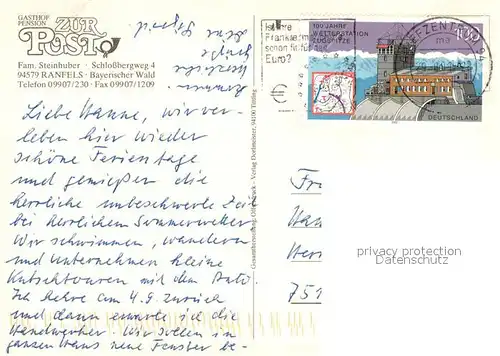 GASTHOF
PENSION
ZUR
POST
Fam. Steinhuber · Schloßbergweg 4
94579 RANFELS · Bayerischer Wald
Telefon 09907/230 · Fax 09907/1209
Liebe Hanne, wir ver-
leben hier wieder
schöne Ferientage
und genießen die
herrliche unbeschwerte Zeit
bei herrlichem Sommerwetter.
Wir schwimmen, wandern
und unternehmen kleine
Kutschtouren mit dem Auto.
Ich kehre am 4.9. zurück
und dann erwarte ich die
Handwerker. Wir sollen im
ganzen Haus neue Fenster be-
Gesamtherstellung, Verlag Dorfmeister, 94104 Tittling
Ist Ihre
schon fit für
Euro?
€
100 JAHRE
WETTERSTATION
ZUGSPITZE
BRIEFZENTRUM 94
DEUTSCHLAND
Fr
Han
Her
751
privacy protection
Datenschutz